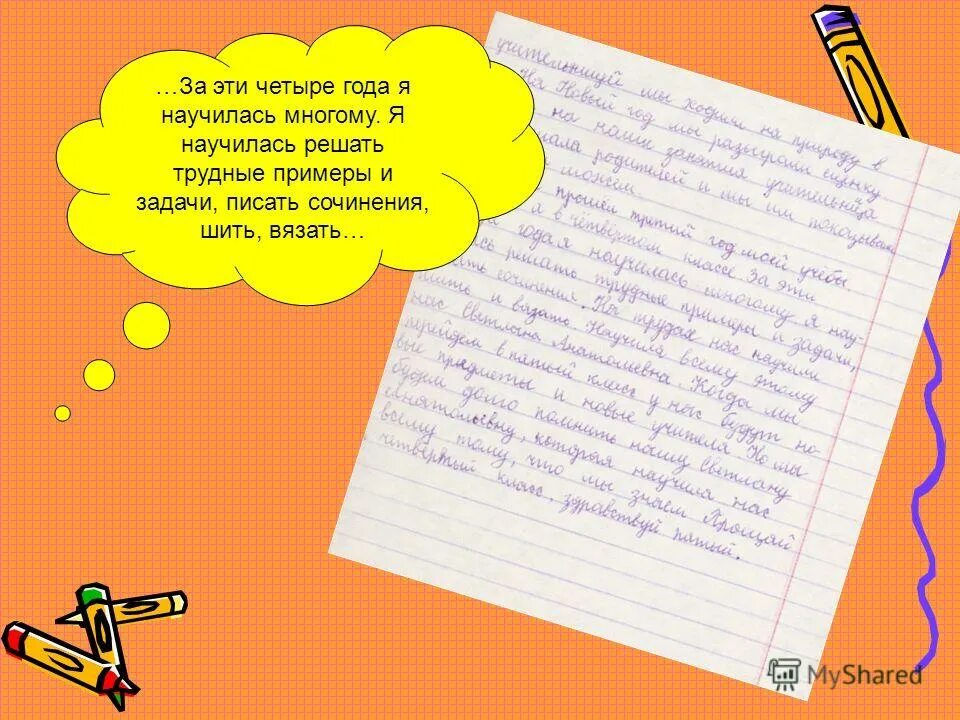 …За эти четыре года я
научилась многому. Я
научилась решать
трудные примеры и
задачи, писать сочинения,
шить, вязать…
учительницей мы ходим на природу в
На Новый год мы разыграли сценку
на наши занятия учительница
родителей и мы им показываем
прошёл третий год моей учёбы
я в четвёртом классе. За эти
года я научилась многому я нау-
решать трудные примеры и задачи,
сочинения. На трудах нас научили
шить и вязать. Научила всему этому
нас Светлана Анатольевна. Когда мы
перейдём в пятый класс у нас будут но-
вые предметы и новые учителя. Но мы
будем долго помнить нашу Светлану
Анатольевну, которая научила нас
всему тому, что мы знаем. Прощай
четвёртый класс, здравствуй пятый.
MyShared